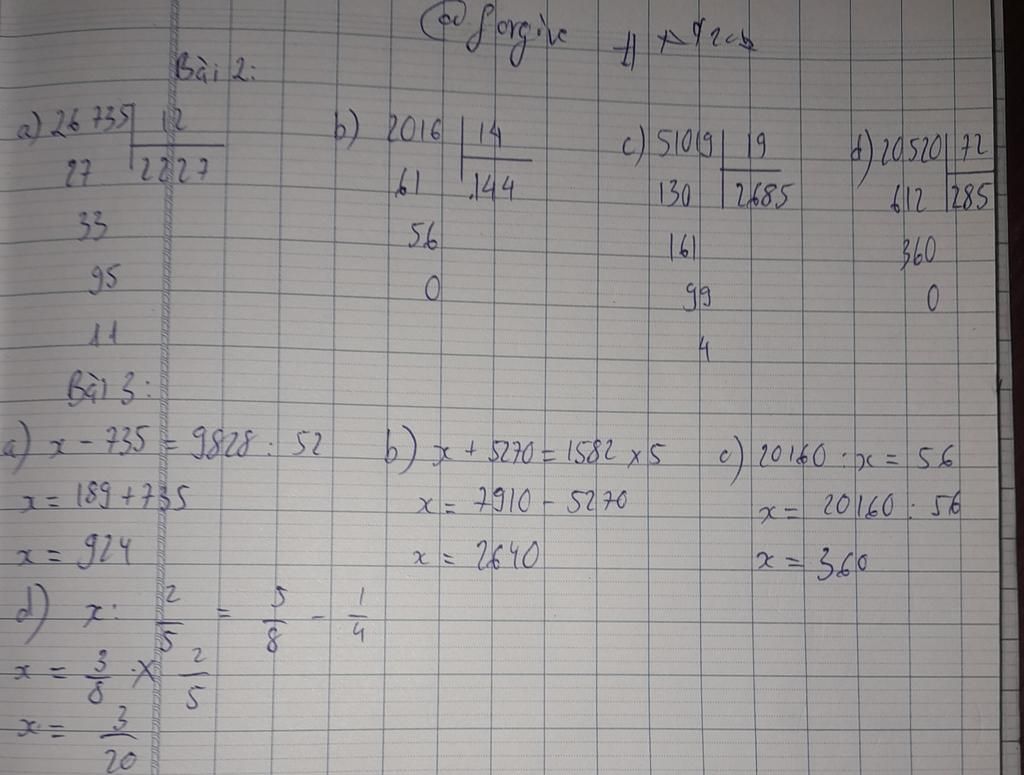 forgive
Bài 2:
a) 26 735 12 b) 2016 14 c) 51019 19 d) 20520 72
27 2227 61 144 130 2685 612 285
33 56 161 360
95 0 99 0
11 4
Bài 3:
a) x - 735 = 9828 : 52 b) x + 5270 = 1582 x 5 c) 20160 : x = 56
x = 189 + 735 x = 7910 - 5270 x = 20160 : 56
x = 924 x = 2640 x = 360
d) x : 2/5 = 5/8 - 1/4
x = 3/8 x 2/5
x = 3/20